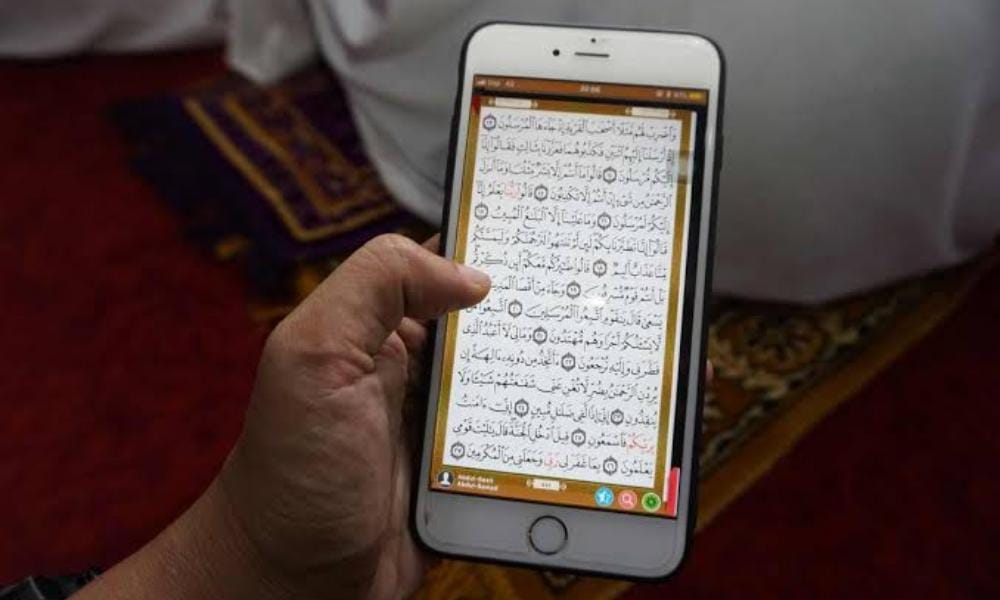 20:08
وَاضْرِبْ لَهُم مَّثَلًا أَصْحَٰبَ الْقَرْيَةِ إِذْ جَآءَهَا الْمُرْسَلُونَ ١٣
إِذْ أَرْسَلْنَآ إِلَيْهِمُ اثْنَيْنِ فَكَذَّبُوهُمَا فَعَزَّزْنَا بِثَالِثٍ فَقَالُوٓا إِنَّآ
إِلَيْكُم مُّرْسَلُونَ ١٤ قَالُوا مَآ أَنتُمْ إِلَّا بَشَرٌ مِّثْلُنَا وَمَآ أَنزَلَ
الرَّحْمَٰنُ مِن شَىْءٍ إِنْ أَنتُمْ إِلَّا تَكْذِبُونَ ١٥ قَالُوا رَبُّنَا يَعْلَمُ إِنَّآ
إِلَيْكُمْ لَمُرْسَلُونَ ١٦ وَمَا عَلَيْنَآ إِلَّا الْبَلَٰغُ الْمُبِينُ ١٧
قَالُوٓا إِنَّا تَطَيَّرْنَا بِكُمْ لَئِن لَّمْ تَنتَهُوا لَنَرْجُمَنَّكُمْ وَلَيَمَسَّنَّكُم
مِّنَّا عَذَابٌ أَلِيمٌ ١٨ قَالُوا طَٰٓئِرُكُم مَّعَكُمْ أَئِن ذُكِّرْتُم
بَلْ أَنتُمْ قَوْمٌ مُّسْرِفُونَ ١٩ وَجَآءَ مِنْ أَقْصَا الْمَدِينَةِ
يَسْعَىٰ قَالَ يَٰقَوْمِ اتَّبِعُوا الْمُرْسَلِينَ ٢٠ اتَّبِعُوا مَن
لَّا يَسْـَٔلُكُمْ أَجْرًا وَهُم مُّهْتَدُونَ ٢١ وَمَا لِىَ لَآ أَعْبُدُ الَّذِى
فَطَرَنِى وَإِلَيْهِ تُرْجَعُونَ ٢٢ ءَأَتَّخِذُ مِن دُونِهِۦٓ ءَالِهَةً إِن
يُرِدْنِ الرَّحْمَٰنُ بِضُرٍّ لَّا تُغْنِ عَنِّى شَفَٰعَتُهُمْ شَيْـًٔا وَلَا
يُنقِذُونِ ٢٣ إِنِّىٓ إِذًا لَّفِى ضَلَٰلٍ مُّبِينٍ ٢٤ إِنِّىٓ ءَامَنتُ
بِرَبِّكُمْ فَاسْمَعُونِ ٢٥ قِيلَ ادْخُلِ الْجَنَّةَ قَالَ يَٰلَيْتَ قَوْمِى
يَعْلَمُونَ ٢٦ بِمَا غَفَرَ لِى رَبِّى وَجَعَلَنِى مِنَ الْمُكْرَمِينَ ٢٧
Abdul-Basit
Abdul-Samad
٤٤١